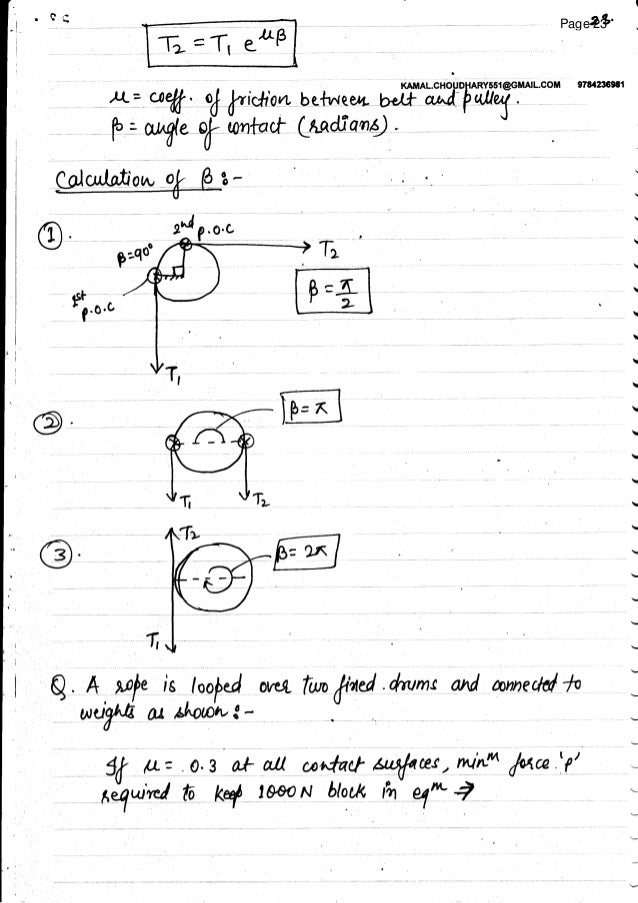 Page 23
T₂ = T₁ e^μβ
KAMAL.CHOUDHARY551@GMAIL.COM 9784236981
μ = coeff. of friction between belt and pulley.
β = angle of contact (radians).
Calculation of β :-
①.
2nd p.o.c
β=90°
T₂
1st p.o.c
β = π/2
T₁
②.
β = π
T₁ T₂
③.
T₂
β = 2π
T₁
Q. A rope is looped over two fixed drums and connected to
weights as shown :-
If μ = 0.3 at all contact surfaces, minᵐ force 'p'
required to keep 1000 N block in eqᵐ ⇒